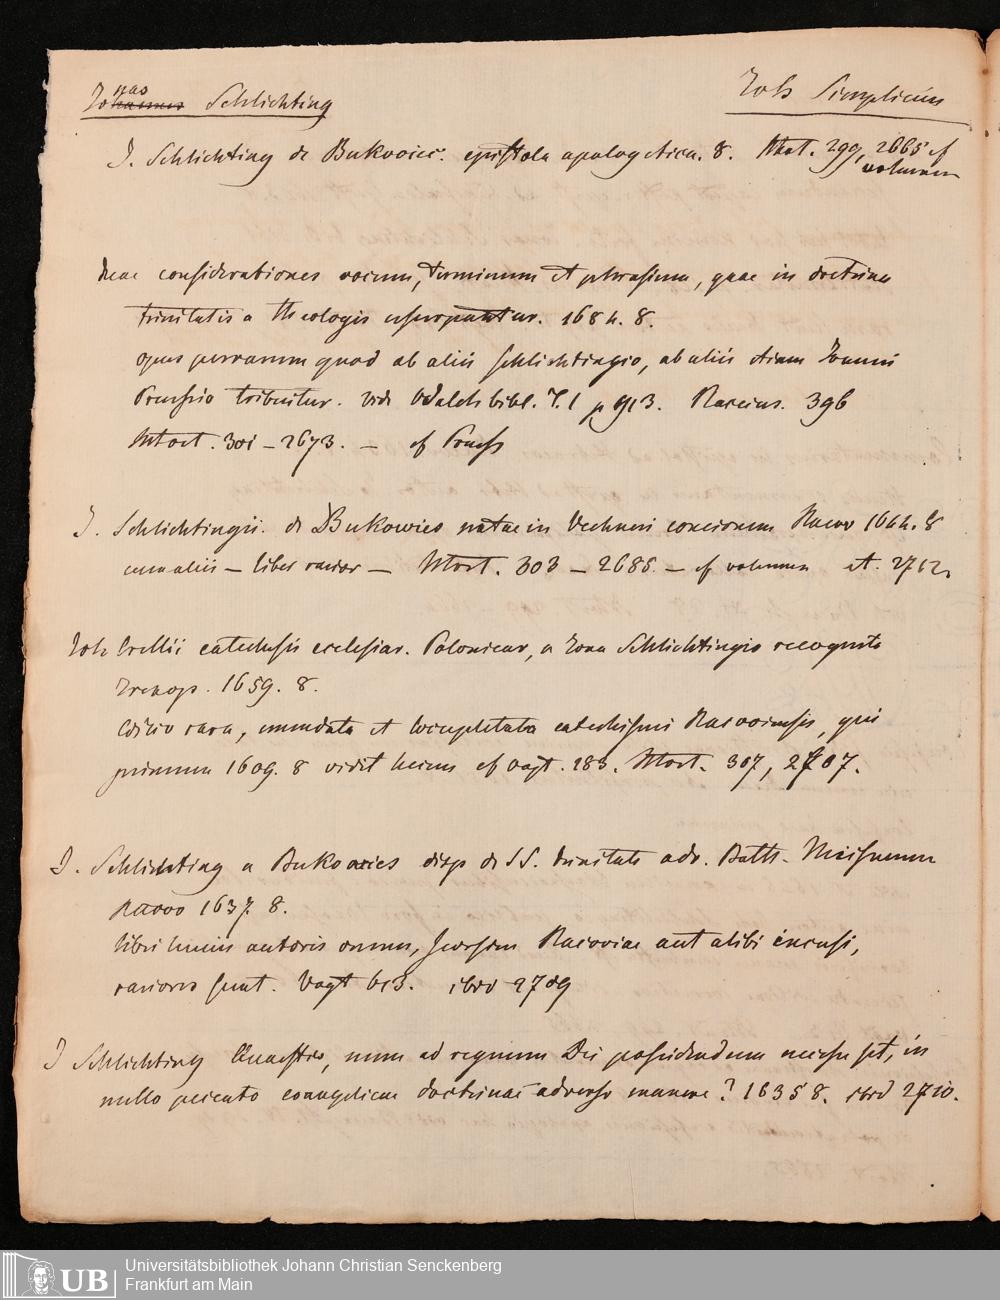 Johannes nas Schlichting
Joh Simplicius
J. Schlichting de Bukowiec. epistola apologetica. 8. Mort. 299, 2665 cf
volumen
duae considerationes vocum, terminum et phrasium, quae in doctrina
trinitatis a theologis usurpantur. 1684. 8.
opus perrarum quod ab aliis Schlichtingio, ab aliis etiam Joanni
Preussio tribuitur. vide Walch bibl. T. 1 p 913.
396
Mort. 301 – 2673. – cf Preuss
J. Schlichtingii. de Bukowiec notae in Vechneri concionem Racov 1644. 8
cum aliis – liber rarior – Mort. 303 – 2685. – cf volumen et. 2712.
Joh Crellii catechesis ecclesiar. Polonicar, a Jona Schlichtingio recognita
Irenop. 1659. 8.
Editio rara, emendata et locupletata catechismi Racoviensis, qui
primum 1609. 8 vidit lucem cf vogt. 183. Mort. 307, 2707.
J. Schlichting a Bukowiec disp de SS. trinitate adv. Balth. Meisnerum
Racov 1637. 8.
libri huius autoris omnes, seorsim Racoviae aut alibi excusi,
rariores sunt. Vogt 613. ibid 2709
J Schlichting Quaestio, num ad regnum Dei possidendum necesse sit, in
nullo peccato evangelicae doctrinae adverso manere? 1635 8. ibid 2710.
UB
Universitätsbibliothek Johann Christian Senckenberg
Frankfurt am Main